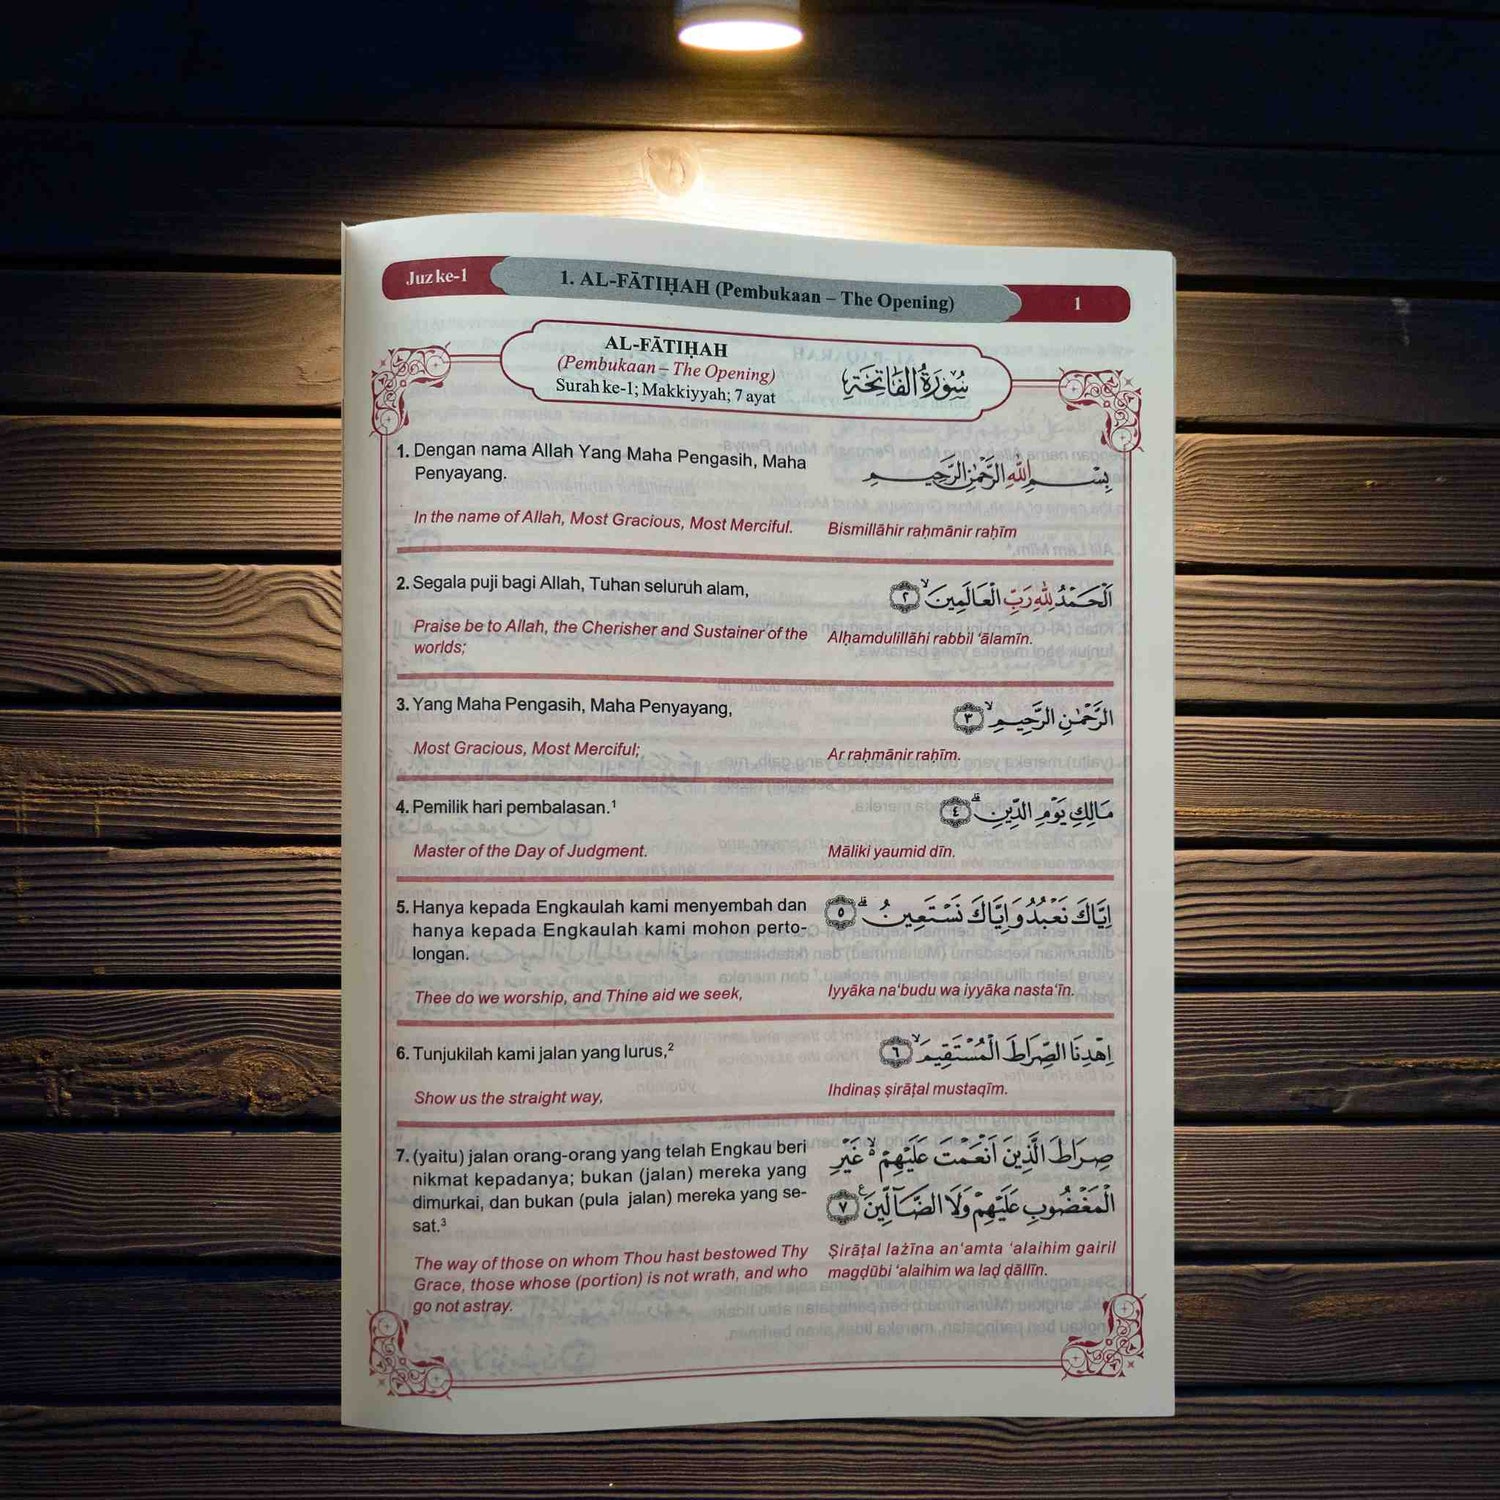 Juz ke-1
1. AL-FĀTIḤAH (Pembukaan – The Opening)
1
AL-FĀTIḤAH
(Pembukaan – The Opening)
Surah ke-1; Makkiyyah; 7 ayat
سُورَةُ الفَاتِحَةِ
1. Dengan nama Allah Yang Maha Pengasih, Maha
Penyayang.
In the name of Allah, Most Gracious, Most Merciful.
بِسْمِ اللّٰهِ الرَّحْمٰنِ الرَّحِيْمِ
Bismillāhir raḥmānir raḥīm
2. Segala puji bagi Allah, Tuhan seluruh alam,
Praise be to Allah, the Cherisher and Sustainer of the
worlds;
اَلْحَمْدُ لِلّٰهِ رَبِّ الْعَالَمِيْنَۙ ٢
Alḥamdulillāhi rabbil ‘ālamīn.
3. Yang Maha Pengasih, Maha Penyayang,
Most Gracious, Most Merciful;
الرَّحْمٰنِ الرَّحِيْمِۙ ٣
Ar raḥmānir raḥīm.
4. Pemilik hari pembalasan.¹
Master of the Day of Judgment.
مَالِكِ يَوْمِ الدِّيْنِۗ ٤
Māliki yaumid dīn.
5. Hanya kepada Engkaulah kami menyembah dan
hanya kepada Engkaulah kami mohon perto-
longan.
Thee do we worship, and Thine aid we seek,
اِيَّاكَ نَعْبُدُ وَاِيَّاكَ نَسْتَعِيْنُۗ ٥
Iyyāka na‘budu wa iyyāka nasta‘īn.
6. Tunjukilah kami jalan yang lurus,²
Show us the straight way,
اِهْدِنَا الصِّرَاطَ الْمُسْتَقِيْمَۙ ٦
Ihdinaṣ ṣirāṭal mustaqīm.
7. (yaitu) jalan orang-orang yang telah Engkau beri
nikmat kepadanya; bukan (jalan) mereka yang
dimurkai, dan bukan (pula jalan) mereka yang se-
sat.³
The way of those on whom Thou hast bestowed Thy
Grace, those whose (portion) is not wrath, and who
go not astray.
صِرَاطَ الَّذِيْنَ اَنْعَمْتَ عَلَيْهِمْ ەۙ غَيْرِ
الْمَغْضُوْبِ عَلَيْهِمْ وَلَا الضَّاۤلِّيْنَࣖ ٧
Ṣirāṭal lażīna an‘amta ‘alaihim gairil
magḍūbi ‘alaihim wa laḍ ḍāllīn.